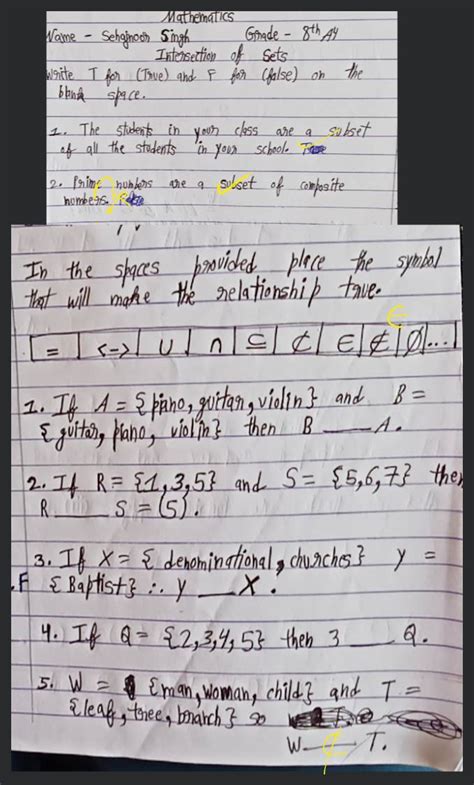 Mathematics
Name - Sehajnoor Singh Grade - 8th A4
Intersection of Sets
Write T for (True) and F for (false) on the
blank space.
1. The students in your class are a subset
of all the students in your school. True
2. Prime numbers are a subset of composite
numbers. False
In the spaces provided place the symbol
that will make the relationship true.
∈
= | <-> | ∪ | ∩ | ⊆ | ⊄ | ∈ | ∉ | Ø | ...
1. If A = {piano, guitar, violin} and B =
{guitar, piano, violin} then B ___ A.
2. If R = {1,3,5} and S = {5,6,7} then
R ___ S = (5).
3. If X = { denominational, churches} y =
.F { Baptist} ∴ y ___ X.
4. If Q = {2,3,4,5} then 3 ___ Q.
5. W = {man, woman, child} and T =
{leaf, tree, branch} so
W ___ T.